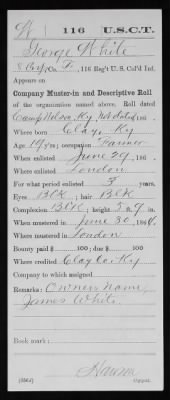 W | 116 | U.S.C.T.
George White
Corp, Co. F, 116 Reg't U. S. Col'd Inf.
Appears on
Company Muster-in and Descriptive Roll
of the organization named above. Roll dated
Camp Nelson, Ky, Not dated, 186 .
Where born Clay, Ky
Age 19 y'rs; occupation Farmer
When enlisted June 29, 186 .
Where enlisted London
For what period enlisted 3 years.
Eyes Blk; hair Blk
Complexion Blk; height 5 ft. 9 in.
When mustered in June 30, 1864.
Where mustered in London
Bounty paid $ 100; due $ 100
Where credited Clay Co. Ky
Company to which assigned
Remarks: Owners name,
James White
Book mark:
Copyist.